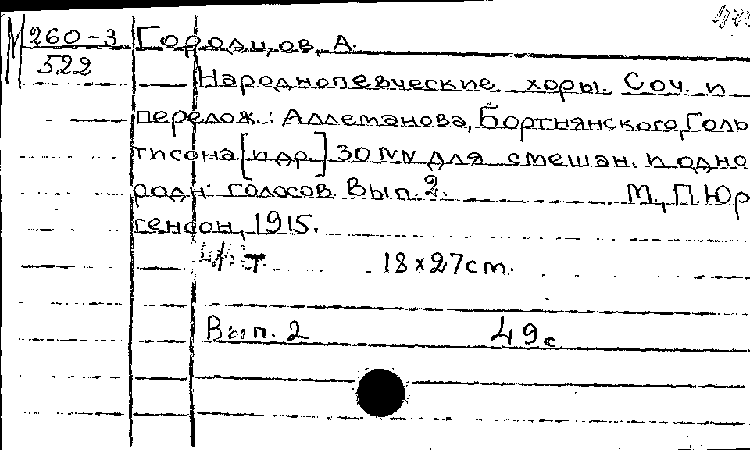 М 260-3 Городцов, А.
522
Народнопевческие хоры. Соч. и
перелож.: Аллеманова, Бортнянского, Голь
тисона [и др.] 30 NN для смешан. и одно
родн. голосов. Вып. 2. М., П. Юр
генсон, 1915.
т. 18х27cm.
Вып. 2 49с